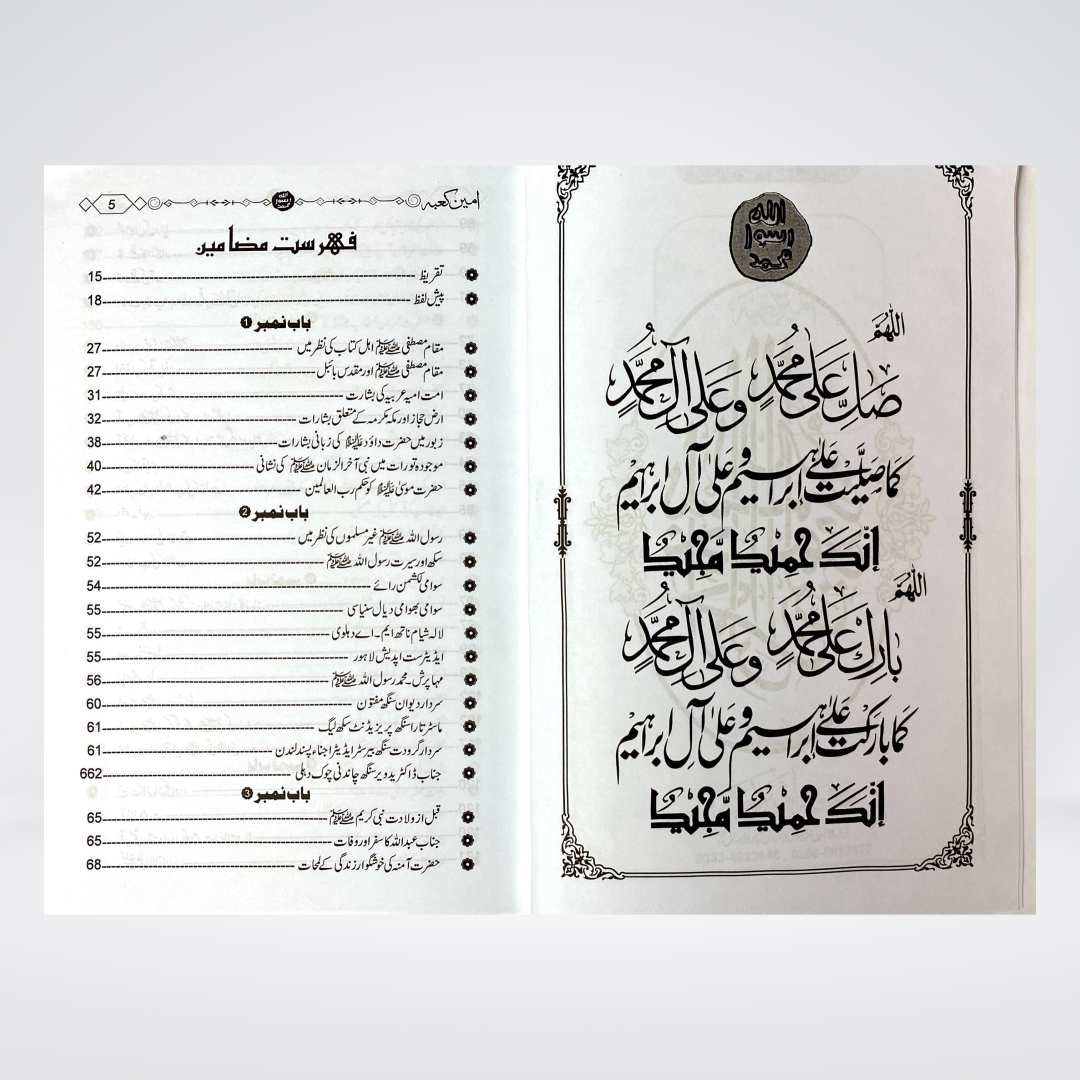 الله
رسول
محمد
اللّٰهُمَّ
صَلِّ عَلٰى مُحَمَّدٍ وَعَلٰى آلِ مُحَمَّدٍ
كَمَا صَلَّيْتَ عَلٰى إِبْرَاهِيْمَ وَعَلٰى آلِ إِبْرَاهِيْمَ
إِنَّكَ حَمِيْدٌ مَّجِيْدٌ
اللّٰهُمَّ
بَارِكْ عَلٰى مُحَمَّدٍ وَعَلٰى آلِ مُحَمَّدٍ
كَمَا بَارَكْتَ عَلٰى إِبْرَاهِيْمَ وَعَلٰى آلِ إِبْرَاهِيْمَ
إِنَّكَ حَمِيْدٌ مَّجِيْدٌ
امین کعبہ الله رسول محمد 5
فہرست مضامین
تقریظ 15
پیش لفظ 18
باب نمبر 1
مقام مصطفی ﷺ اہل کتاب کی نظر میں 27
مقام مصطفی ﷺ اور مقدس بائبل 27
امت امیہ عربیہ کی بشارت 31
ارض حجاز اور مکہ مکرمہ کے متعلق بشارات 32
زبور میں حضرت داؤد علیہ السلام کی زبانی بشارات 38
موجودہ تورات میں نبی آخر الزمان ﷺ کی نشانی 40
حضرت موسیٰ علیہ السلام کو حکم رب العالمین 42
باب نمبر 2
رسول اللہ ﷺ غیر مسلموں کی نظر میں 52
سکھ اور سیرت رسول اللہ ﷺ 52
سوامی لکشمن رائے 54
سوامی بھوامی دیال سنیاسی 55
لالہ شیام ناتھ ایم۔اے دہلوی 55
ایڈیٹر ست اپدیش لاہور 55
مہاپرش۔محمد رسول اللہ ﷺ 56
سردار دیوان سنگھ مفتون 60
ماسٹر تارا سنگھ پریزیڈنٹ سکھ لیگ 61
سردار گرودت سنگھ بیرسٹر ایڈیٹر اجناء پسند لندن 61
جناب ڈاکٹر یدویر سنگھ چاندنی چوک دہلی 662
باب نمبر 3
قبل از ولادت نبی کریم ﷺ 65
جناب عبداللہ کا سفر اور وفات 65
حضرت آمنہ کی خوشگوار زندگی کے لمحات 68